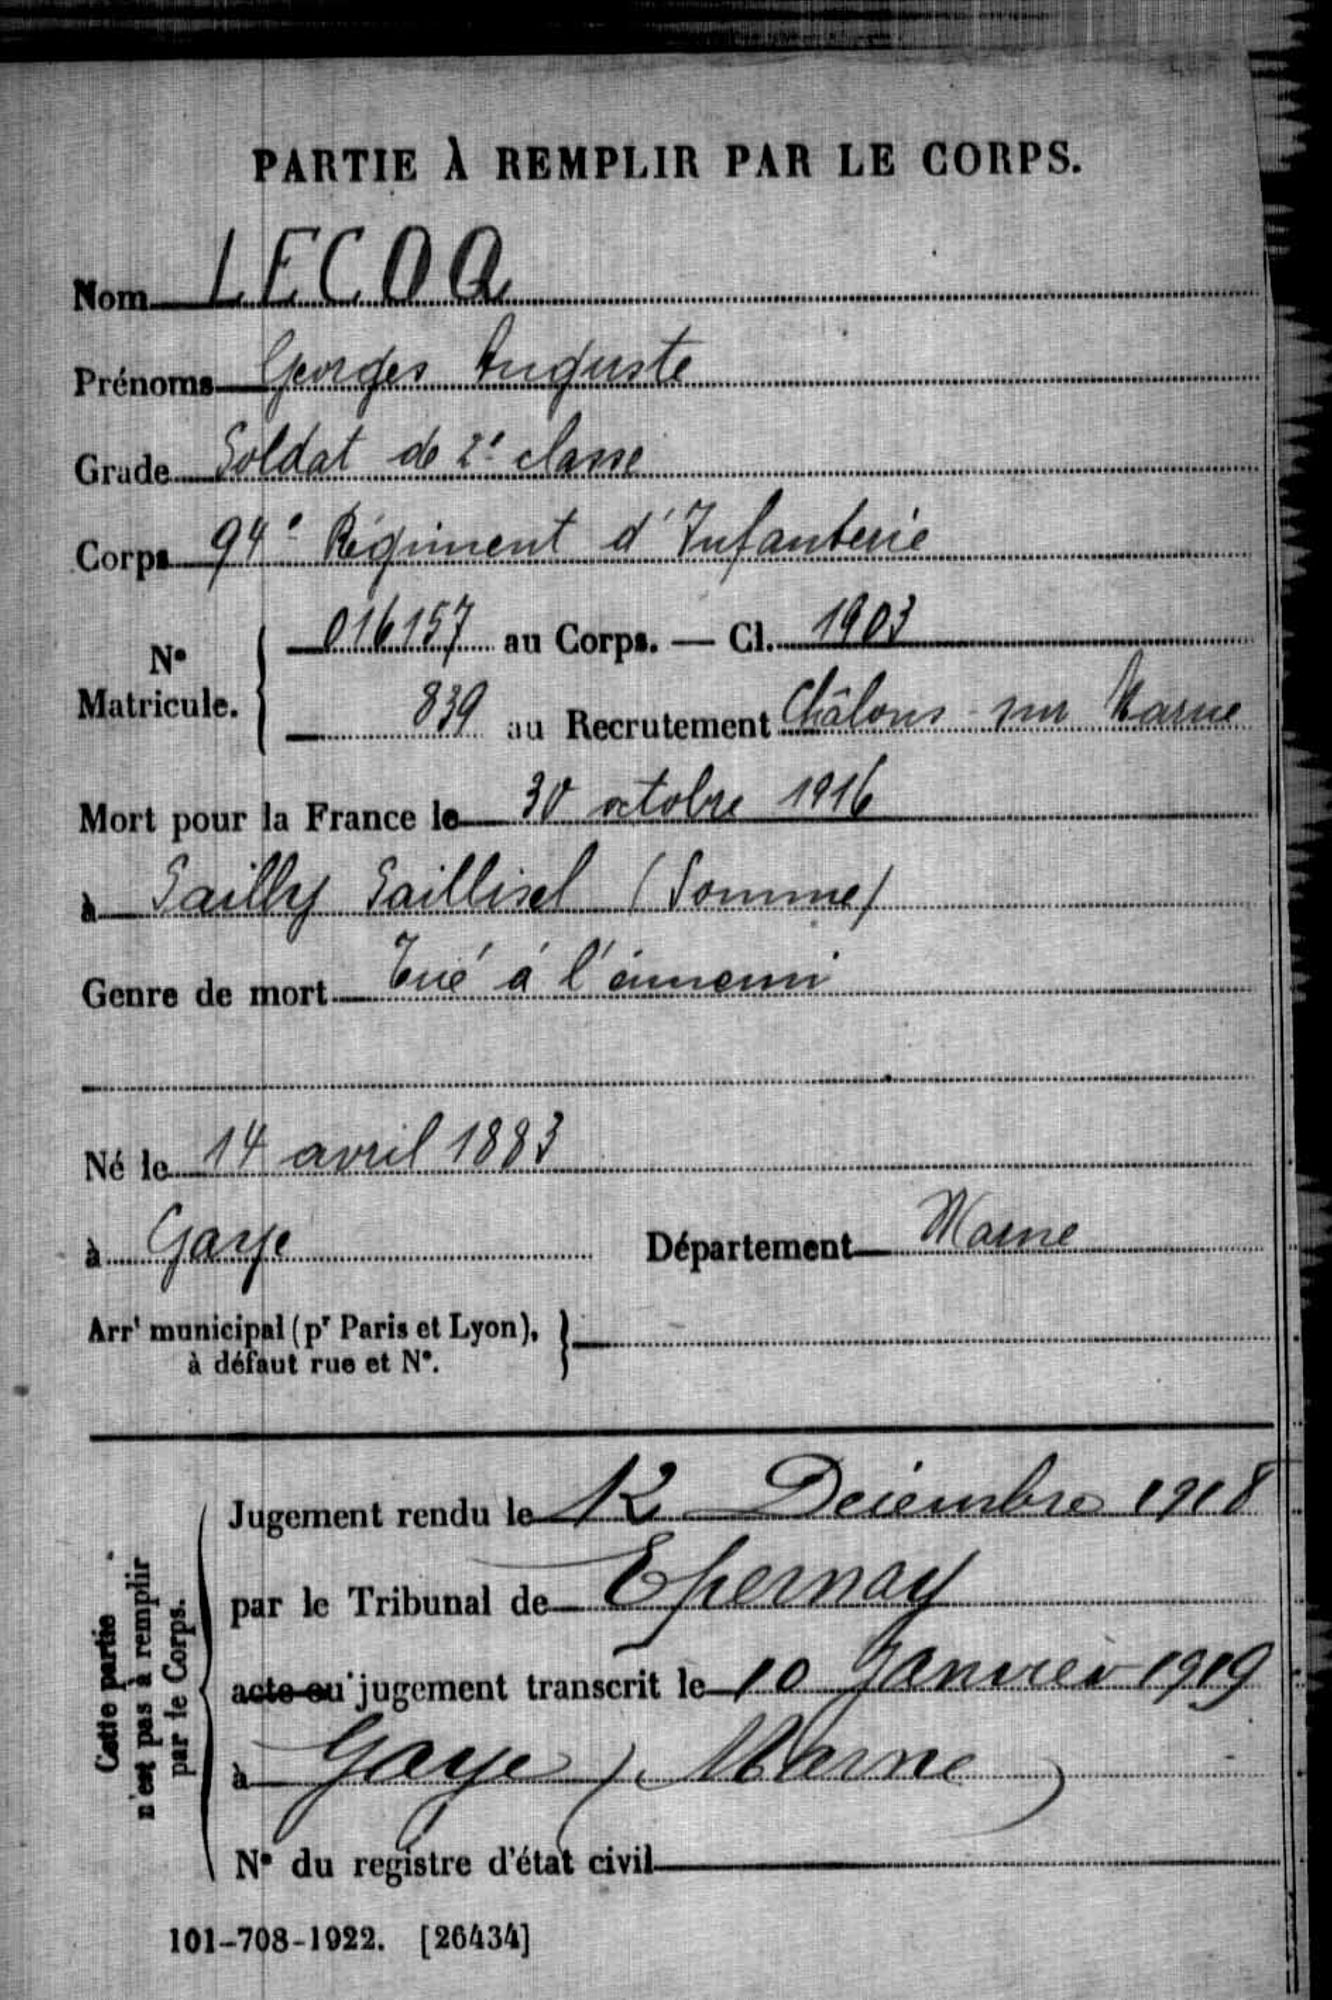 PARTIE À REMPLIR PAR LE CORPS.
Nom LECOQ
Prénoms Georges Auguste
Grade Soldat de 2e classe
Corps 94e Régiment d'Infanterie
N° Matricule. 016157 au Corps. — Cl. 1903
839 au Recrutement Châlons-sur Marne
Mort pour la France le 30 octobre 1916
à Sailly Saillisel (Somme)
Genre de mort Tué à l'énnemi
Né le 14 avril 1883
à Gaye Département Marne
Arrt municipal (pr Paris et Lyon),
à défaut rue et N°.
Cette partie
n'est pas à remplir
par le Corps.
Jugement rendu le 12 Décembre 1918
par le Tribunal de Epernay
acte ou jugement transcrit le 10 Janvier 1919
à Gaye (Marne)
N° du registre d'état civil
101-708-1922. [26434]